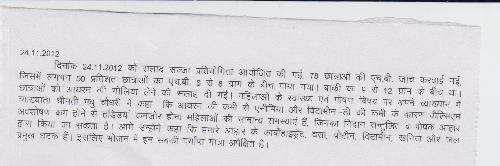 24.11.2012
दिनांक 24.11.2012 को सलाद सज्जा प्रतियोगिता आयोजित की गई, 78 छात्राओं की एच.बी. जांच करवाई गई,
जिसमें लगभग 50 प्रतिशत छात्राओं का एच.बी. 6 से 8 ग्राम के बीच पाया गया। बाकी का 9 से 12 ग्राम के बीच था।
छात्राओं को आयरन की गोलियां लेने की सलाह दी गई। महिलाओं के स्वास्थ्य एवं पोषण विषय पर अपने व्याख्यान में
व्याख्याता श्रीमती मधु चौधरी ने कहा कि आयरन की कमी से एनीमिया और विटामीन-सी की कमी के कारण कैल्सियम
अवशोषण कम होने से हड्डियां कमजोर होना महिलाओं की सामान्य समस्याएं हैं, जिनका निदान सन्तुलित व पोषक आहार
द्वारा किया जा सकता है। आगे उन्होंने कहा कि हमारे आहार के कार्बोहाइड्रेट, वसा, प्रोटीन, विटामीन, खनिज और जल
प्रमुख घटक हैं। इसलिए भोजन में इन सबकी पर्याप्त मात्रा अपेक्षित है।